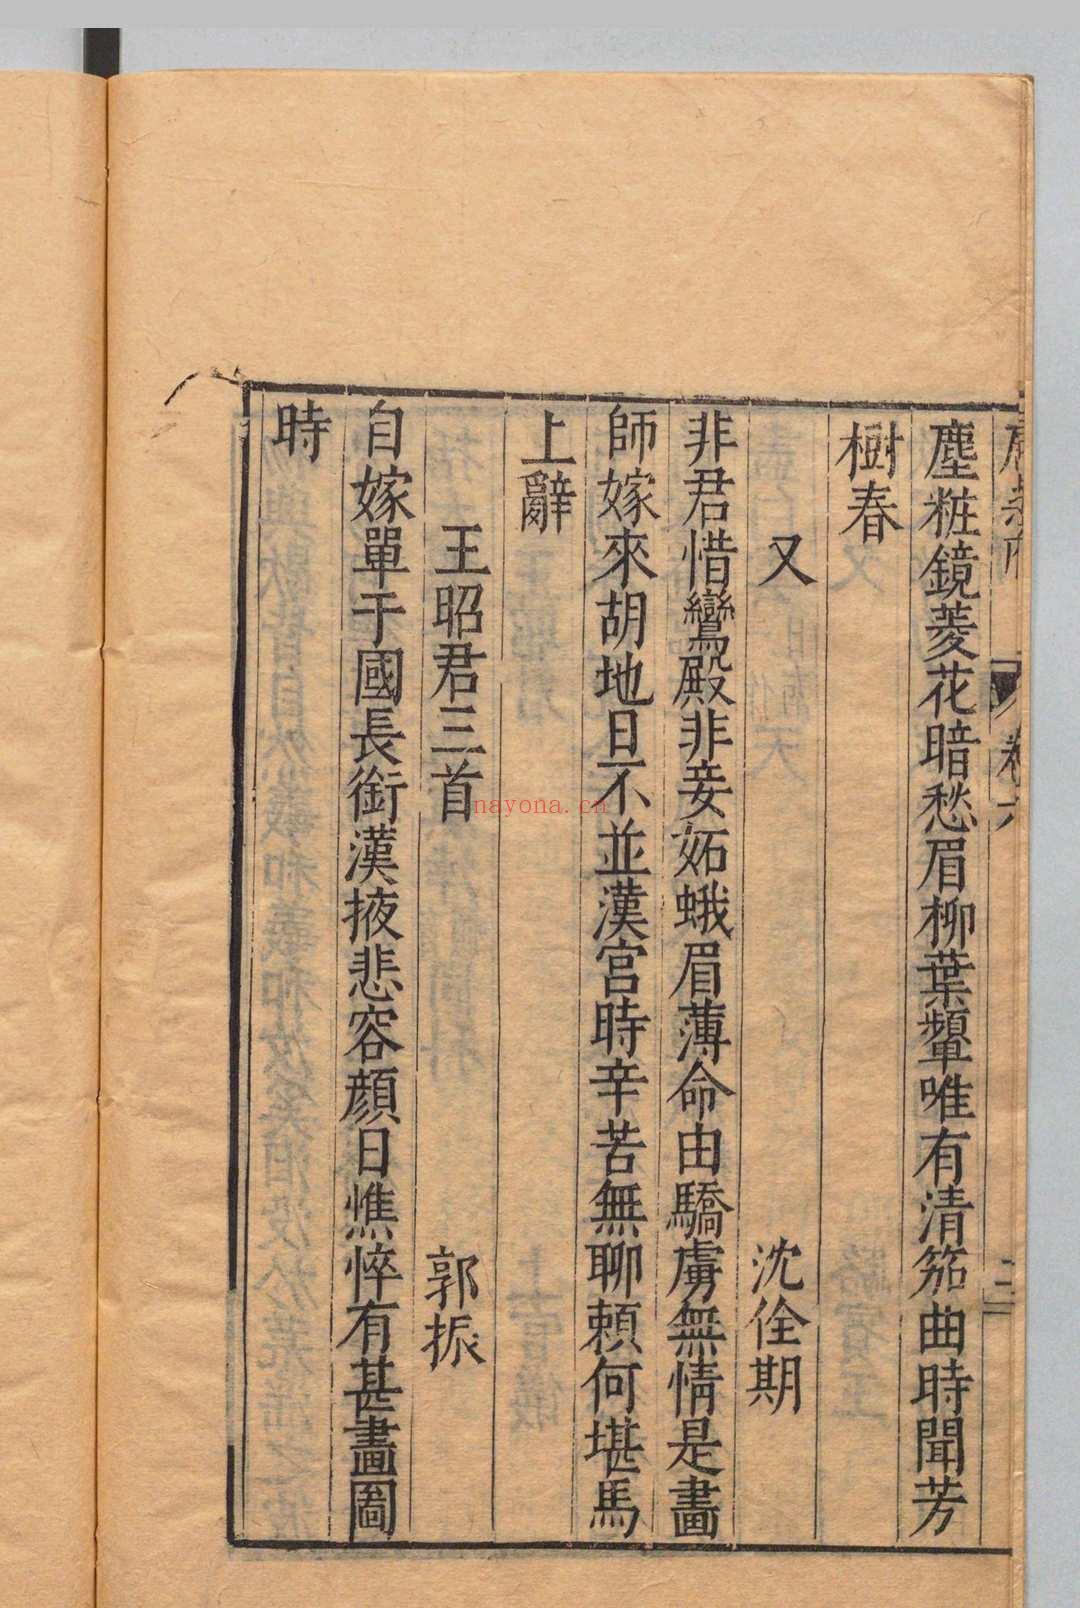 塵粧鏡菱花暗愁眉柳葉顰唯有清笳曲時聞芳
樹春
又
沈佺期
非君惜鸞殿非妾妬蛾眉薄命由驕虜無情是畫
師嫁來胡地日不並漢宮時辛苦無聊賴何堪馬
上辭
王昭君三首
郭振
自嫁單于國長銜漢掖悲容顏日憔悴有甚畫圖
時
卷六
nayona.cn